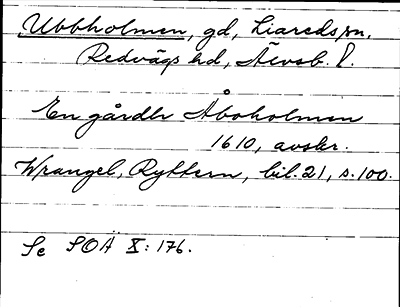 Ubbholmen, gd, Liareds sn,
Redvägs hd, Älvsb. l.
En gårdh Åboholmen
1610, avskr.
Wrangel, Ryttern, bil. 21, s. 100.
Se SOÄ X: 176.